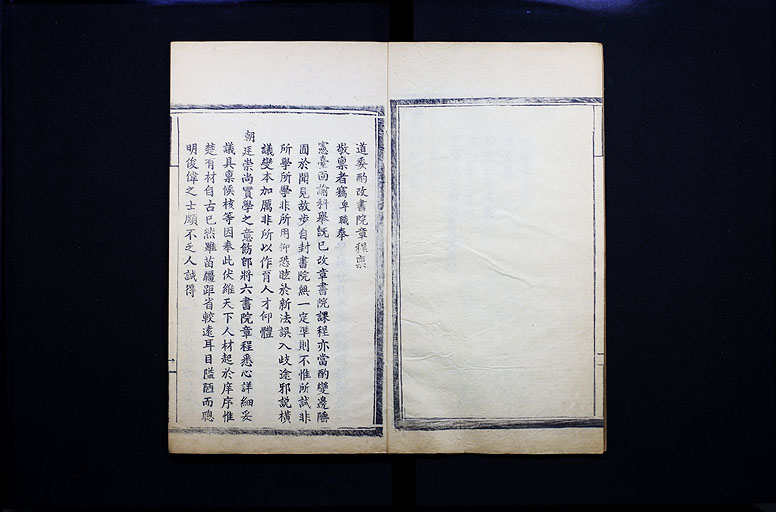 道委酌改書院章程稟
敬稟者竊卑職奉
憲臺面諭科舉既已改章書院課程亦當酌變邊隅
囿於聞見故步自封書院無一定準則不惟所試非
所學所學非所用抑恐眩於新法誤入歧途邪說橫
議變本加厲非所以作育人才仰體
朝廷崇尚實學之意飭即將六書院章程悉心詳細妥
議具稟候核等因奉此伏維天下人材起於庠序惟
楚有材自古已然雖苗疆距省較遠耳目隘陋而聰
明俊偉之士頗不乏人誠得